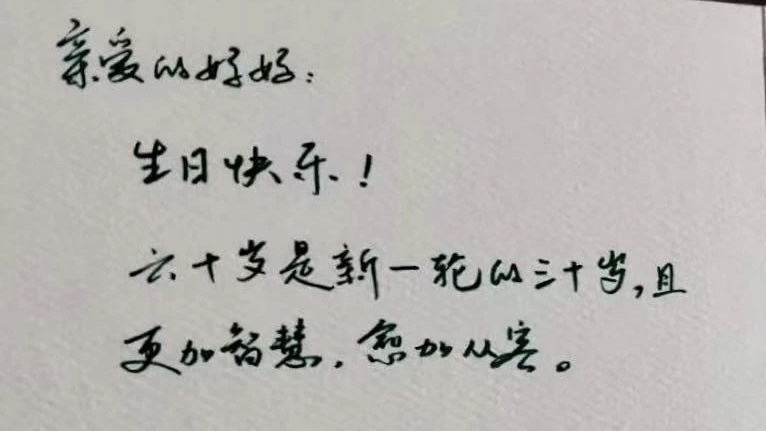 亲爱的好好：
生日快乐！
六十岁是新一轮的三十岁，且
更加智慧，愈加从容。